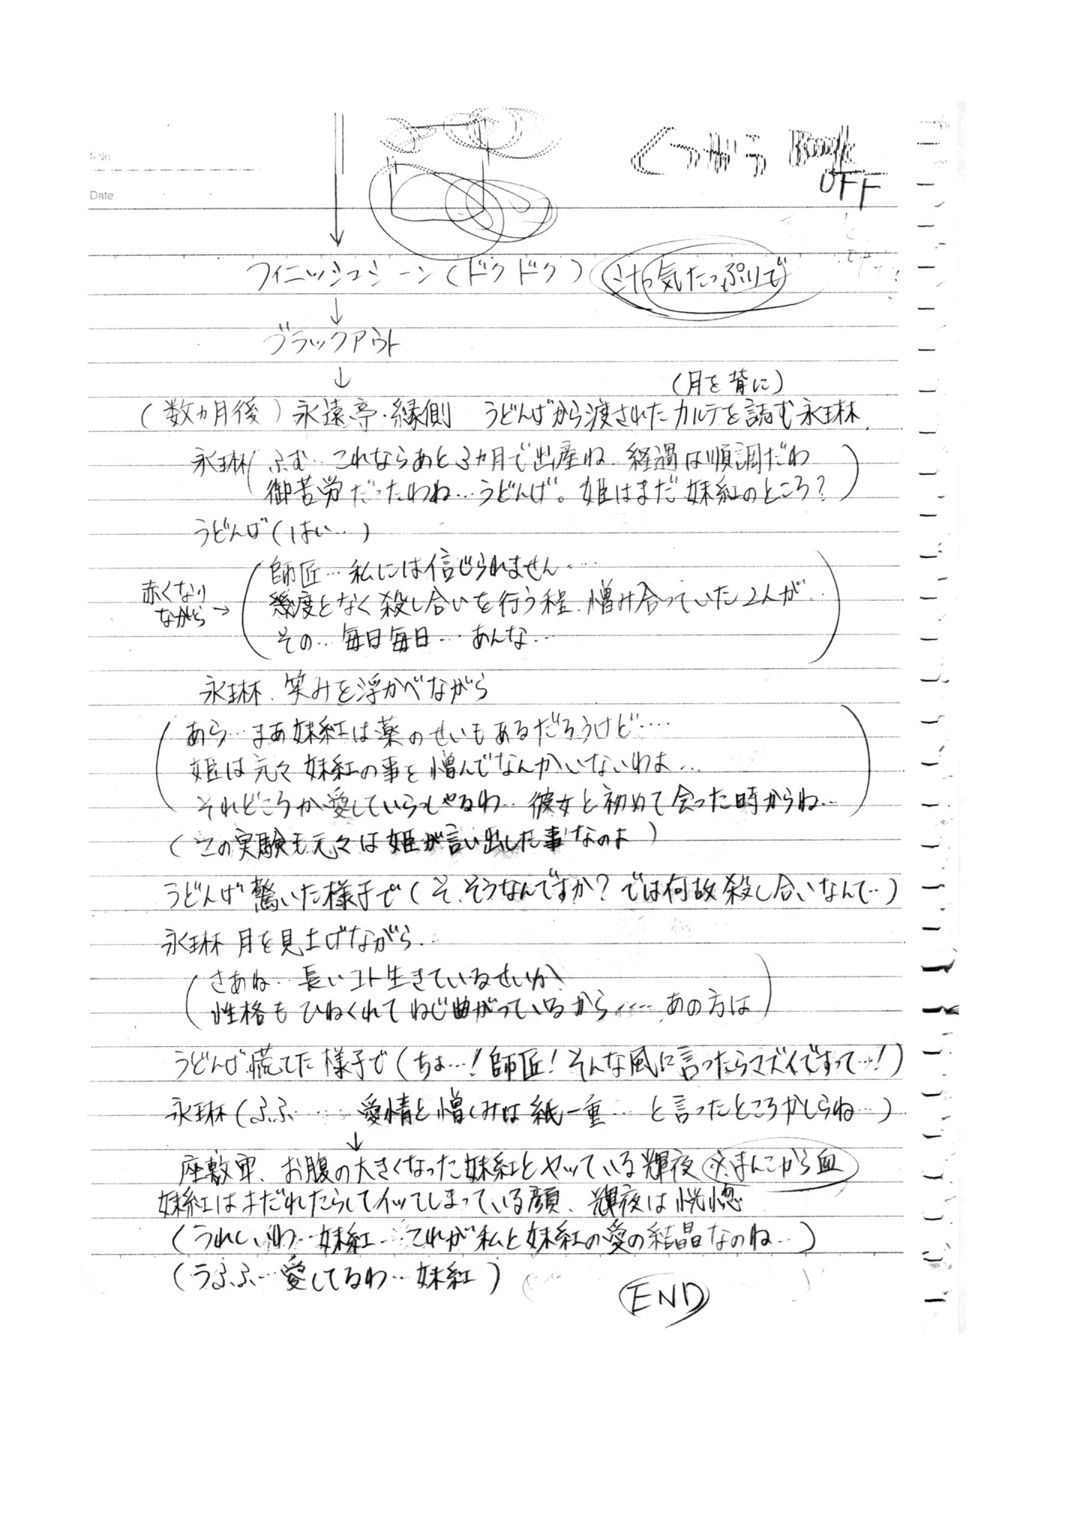 No.
Date
OFF
フィニッシュシーン(ドクドク) 気たっぷりで
ブラックアウト
(月を背に)
(数ヵ月後)永遠亭・縁側 うどんげから渡されたカルテを読む永琳
永琳(ふむ…これならあと3ヵ月で出産ね 経過は順調だわ
御苦労だったわね…うどんげ。姫はまだ妹紅のところ?)
うどんげ(はい…)
赤くなり
ながら→
(師匠…私には信じられません…
幾度となく殺し合いを行う程、憎み合っていた2人が…
その…毎日毎日…あんな…)
永琳、笑みを浮かべながら
(あら…まあ妹紅は薬のせいもあるだろうけど…
姫は元々妹紅の事を憎んでなんかいないわよ…
それどころか愛していらっしゃるわ…彼女と初めて会った時からね…)
(この実験も元々は姫が言い出した事なのよ)
うどんげ驚いた様子で(そ、そうなんですか?では何故殺し合いなんて…)
永琳 月を見上げながら…
(さあね…長いコト生きているせいか
性格もひねくれてねじ曲がっているから……あの方は)
うどんげ慌てた様子で(ちょ…!師匠!そんな風に言ったらマズイですって…!)
永琳(ふふ……愛情と憎しみは紙一重…と言ったところかしらね…)
座敷牢、お腹の大きくなった妹紅とヤッている輝夜 ※まんこから血
妹紅はまだれたらしてイッてしまっている顔、輝夜は恍惚
(うれしいわ…妹紅…これが私と妹紅の愛の結晶なのね…)
(うふふ…愛してるわ…妹紅)
END